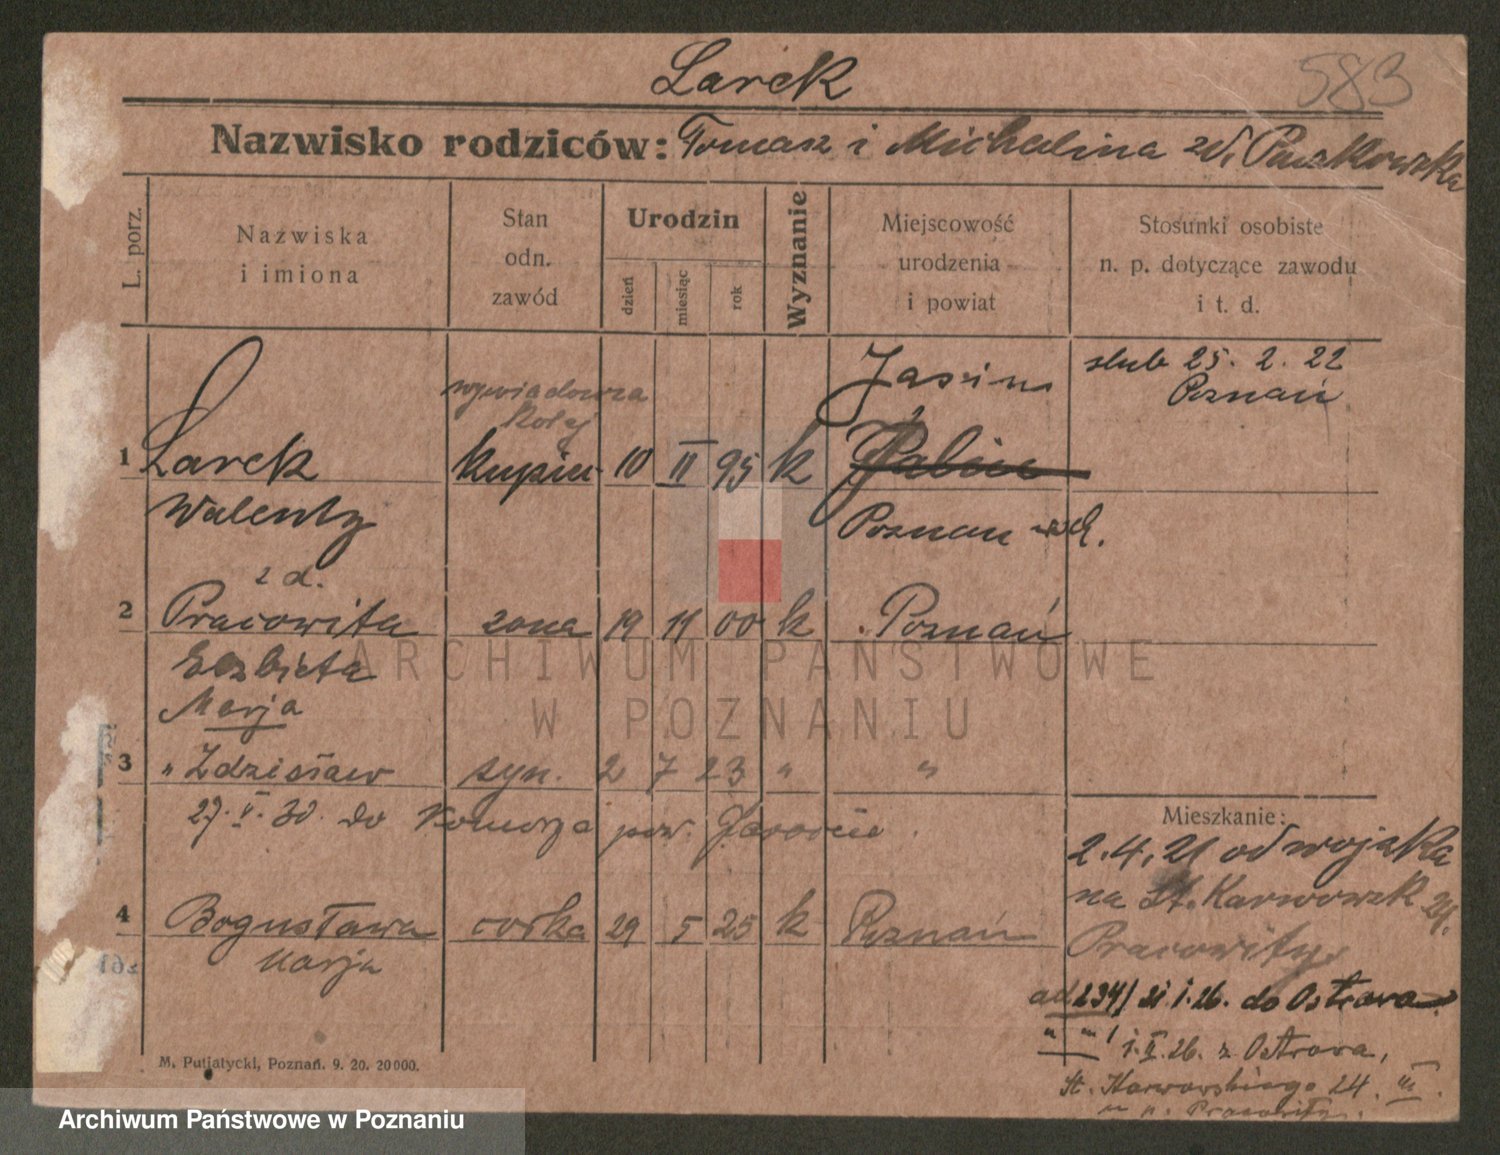 583
Larek
Nazwisko rodziców: Tomasz i Michalina zd. Paszkowska
L. porz.
Nazwiska
i imiona
Stan
odn.
zawód
Urodzin
dzień
miesiąc
rok
Wyznanie
Miejscowość
urodzenia
i powiat
Stosunki osobiste
n. p. dotyczące zawodu
i t. d.
wywiadowca
kolej
Jasin
ślub 25. 2. 22
Poznań
1 Larek kupiec 10 II 95 k
Walenty Poznań wsch.
z d.
2 Pracowita żona 19 11 00 k Poznań
Elżbieta
Marja
3 " Zdzisław syn. 2 7 23 " "
27. V. 30. do Komorza pow. Jarocin.
Mieszkanie:
2. 4. 21 od wojska
na St. Karwowsk 24.
4 Bogusława córka 29 5 25 k Poznań
Marja
Pracowity
ad 234/21 1. 26. do Ostrowa
" " 1. II. 26. z Ostrowa,
St. Karwowskiego 24. III.
u p. Pracowity.
M. Putiatycki, Poznań. 9. 20. 20000.
ARCHIWUM PAŃSTWOWE
W POZNANIU
Archiwum Państwowe w Poznaniu